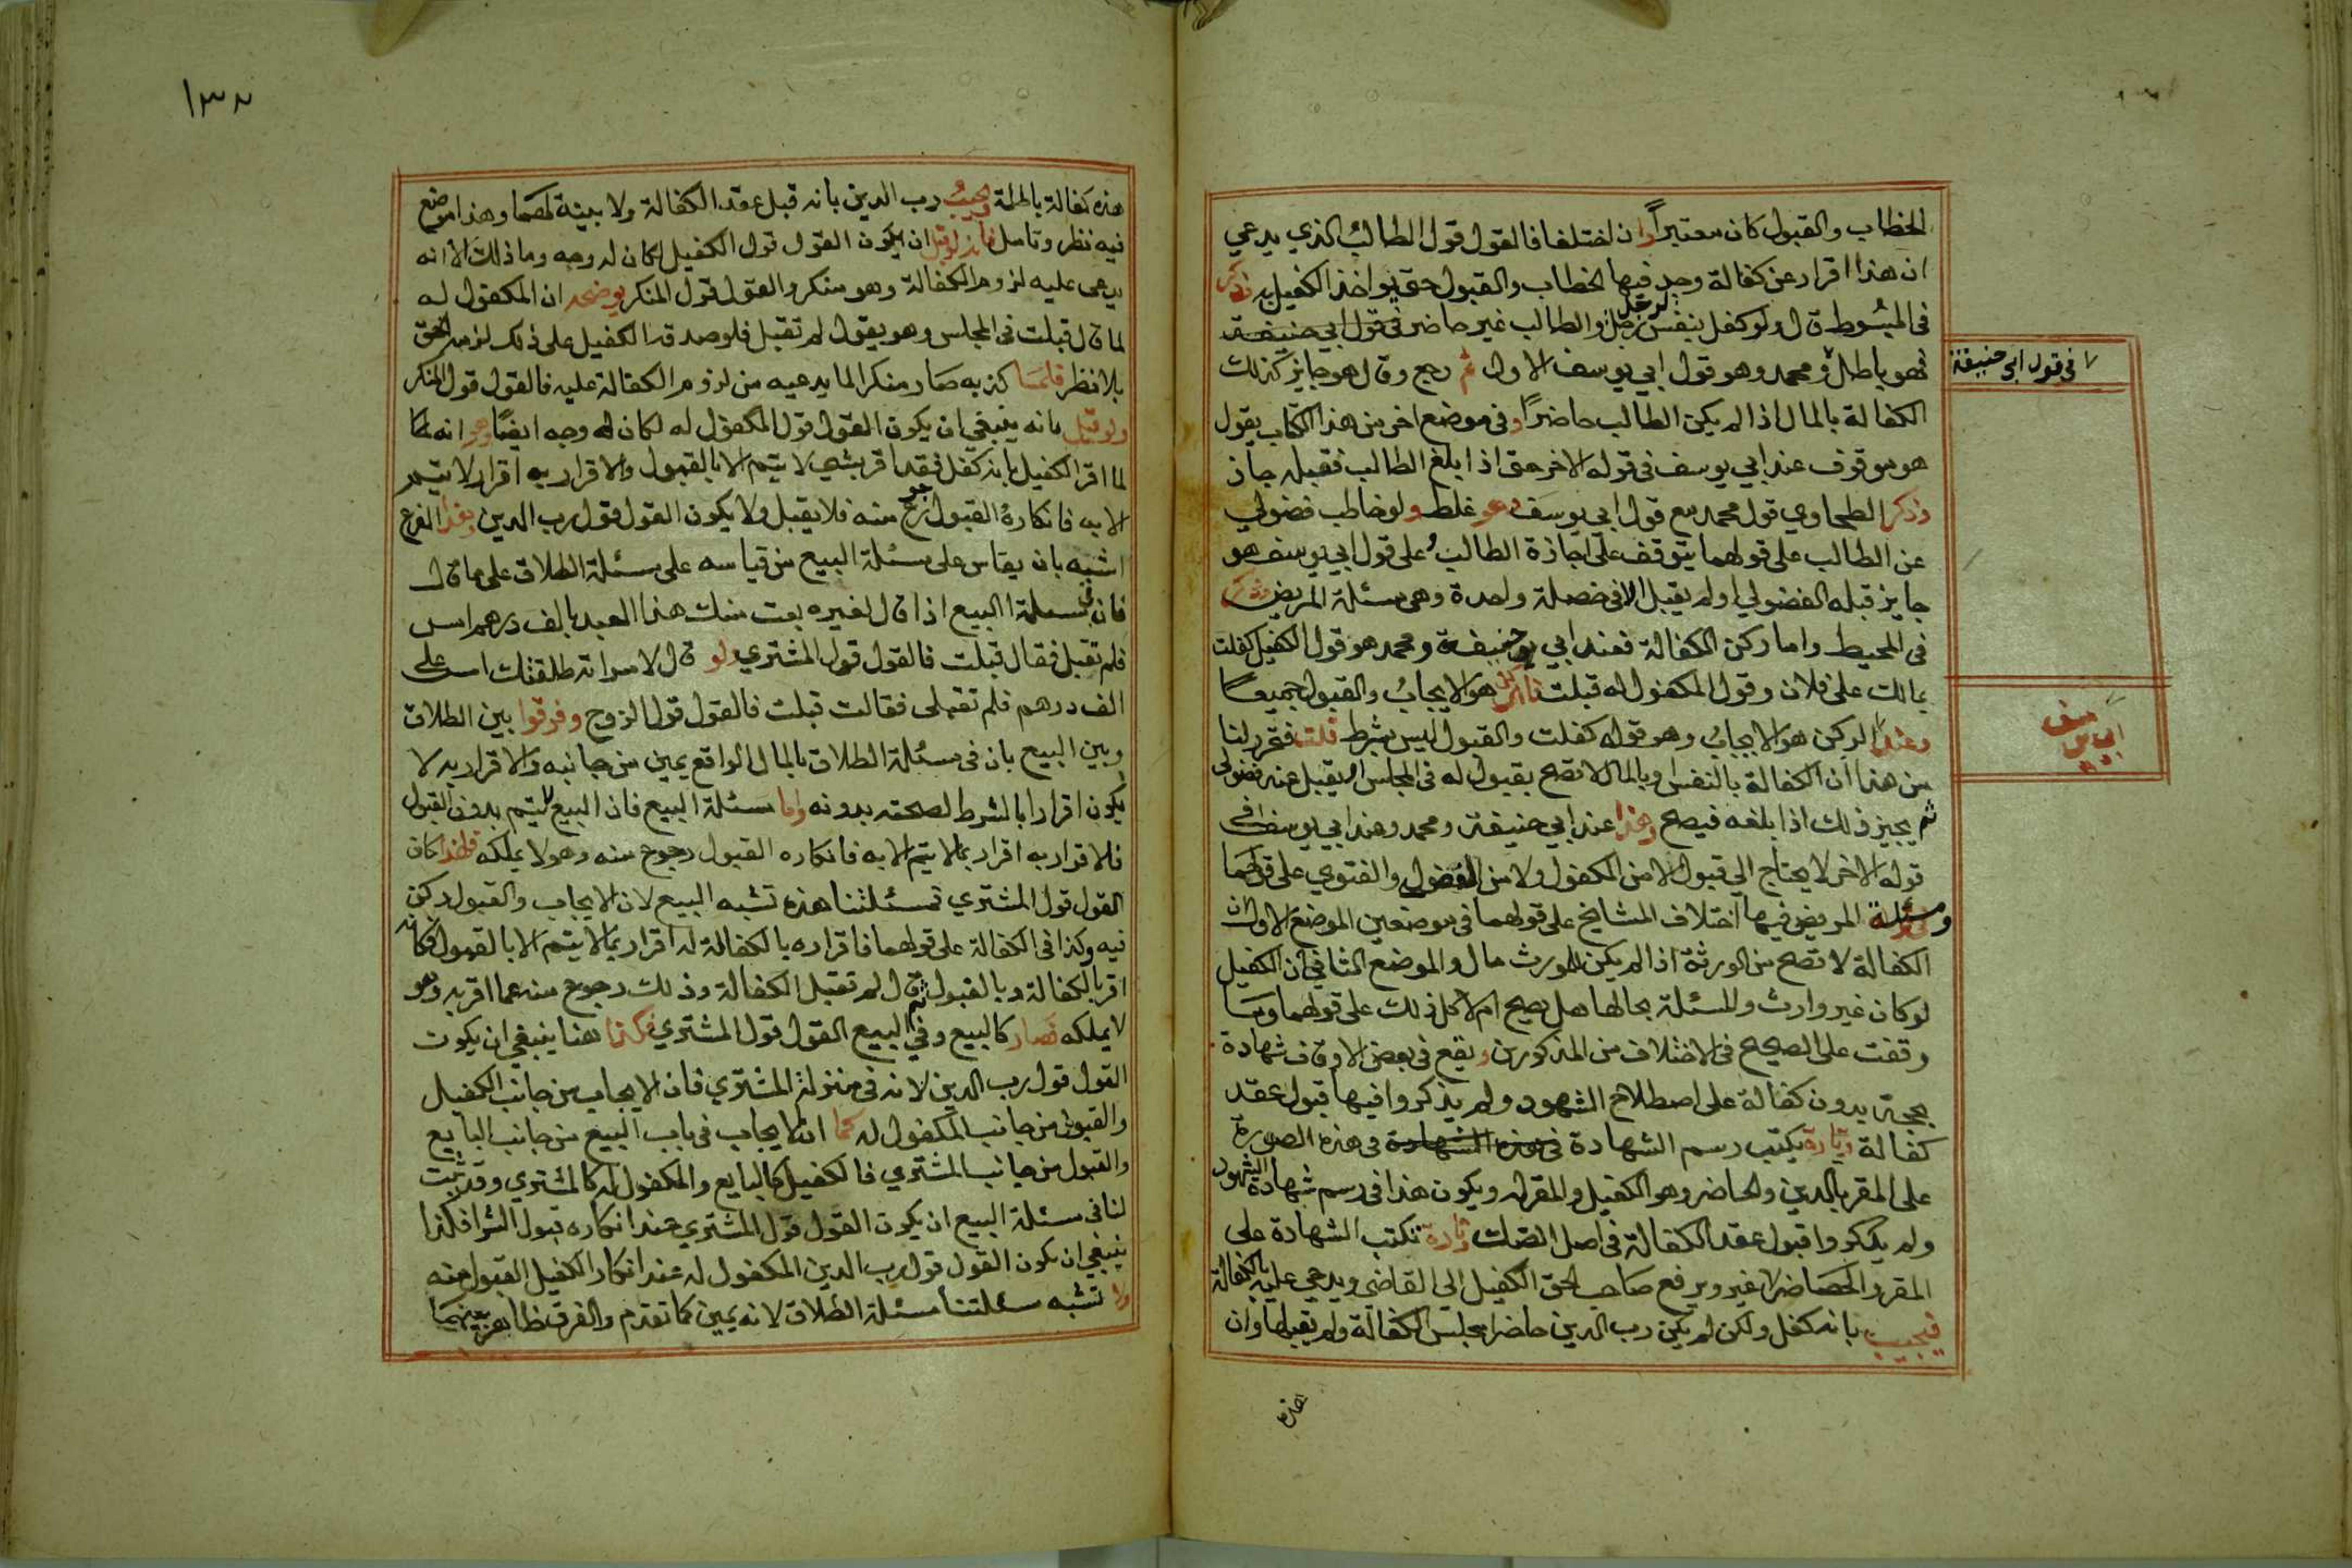 الخطاب والقبول كان معتبراً وان اختلفا فالقول قول الطالب الذي يدعي
ان هذا اقرار عن كفالة وجد فيها الخطاب والقبول حتى يواخذ الكفيل به ذكر
فى المبسوط قال ولو كفل بنفس رجل لرجل والطالب غير حاضر فى قول ابي حنيفة
فهو باطل ومحمد وهو قول ابي يوسف الاول ثم رجع وقال هو جايز كذلك
الكفالة بالمال اذا لم يكن الطالب حاضراً وفى موضع اخر من هذا الكتاب يقول
هو موقوف عند ابي يوسف فى قوله الاخر حتى اذا بلغ الطالب فقبله جاز
وذكر الطحاوي قول محمد مع قول ابي يوسف وهو غلط ولو خاطب فضولي
عن الطالب على قولهما يتوقف على اجازة الطالب وعلى قول ابي يوسف هو
جايز قبله الفضولي او لم يقبل الا فى خصلة واحدة وهى مسئلة المريض وذكر
فى المحيط واما ركن الكفالة فعند ابي حنيفة ومحمد هو قول الكفيل كفلت
بمالك على فلان وقول المكفول له قبلت فالركن هو الايجاب والقبول جميعا
وعند الركن هو الايجاب وهو قوله كفلت والقبول ليس بشرط قلت فتحرر لنا
من هذا ان الكفالة بالنفس وبالمال لا تصح بقبول له فى المجلس او يقبل عنه فضولى
ثم يجيز ذلك اذا بلغه فيصح وهذا عند ابي حنيفة ومحمد وعند ابي يوسف فى
قوله الاخر لا يحتاج الى قبول لا من المكفول ولا من الفضولي والفتوى على قولهما
ومسئلة المريض فيها اختلاف المشايخ على قولهما فى موضعين الموضع الاول ان
الكفالة لا تصح من الورثة اذا لم يكن للمورث مال والموضع الثاني ان الكفيل
لو كان غير وارث والمسئلة بحالها هل يصح ام لا كل ذلك على قولهما وما
وقفت على الصحيح فى الاختلاف من المذكورين ويقع فى بعض الاوقات شهادة
بحجة بدون كفالة على اصطلاح الشهود ولم يذكروا فيها قبول عقد
كفالة وتارة يكتب رسم الشهادة فى هذه الشهادة فى هذه الصورة
على المقر بالدين والحاضر وهو الكفيل والمقر له ويكون هذا فى رسم شهادة الشهود
ولم يذكروا قبول عقد الكفالة فى اصل الصك وتارة تكتب الشهادة على
المقر والحاضر لا غير ويرفع صاحب الحق الكفيل الى القاضي ويدعي عليه بالكفالة
فيجيب بانه كفل ولكن لم يكن رب الدين حاضرا مجلس الكفالة ولم يقبلها وان
هذه
فى قول ابى حنيفة
ابي يوسف
١٣٨
هذه كفالة باطلة ويجيب رب الدين بانه قبل عقد الكفالة ولا بينة لهما وهذا موضع
فيه نظر وتامل فانه لو قيل ان يكون القول قول الكفيل لكان له وجه وما ذلك الا انه
يدعى عليه لزوم الكفالة وهو منكر والقول قول المنكر يوضحه ان المكفول له
لما قال قبلت فى المجلس وهو يقول لم تقبل فلو صدقه الكفيل على ذلك لزمه الحق
بلا نظر فلما كذبه صار منكرا لما يدعيه من لزوم الكفالة عليه فالقول قول المنكر
ولو قيل بانه ينبغي ان يكون القول قول المكفول له لكان له وجه ايضا وهو انه لما
لما اقر الكفيل بانه كفل فقد اقر بشي لا يتم الا بالقبول والاقرار به اقرار لا يتم
الا به فانكاره القبول رجوع منه فلا يقبل ولا يكون القول قول رب الدين وهذا الفرع
اشبه بان يقاس على مسئلة البيع من قياسه على مسئلة الطلاق على ما قال
فان فى مسئلة البيع اذا قال لغيره بعت منك هذا العبد بالف درهم امس
فلم تقبل فقال قبلت فالقول قول المشتري ولو قال لامراته طلقتك امس على
الف درهم فلم تقبلى فقالت قبلت فالقول قول الزوج وفرقوا بين الطلاق
وبين البيع بان فى مسئلة الطلاق بالمال الواقع يمين من جانبه والاقرار به لا
يكون اقرارا بالشرط لصحته بدونه واما مسئلة البيع فان البيع لا يتم بدون القبول
فالاقرار به اقرار بما لا يتم الا به فانكاره القبول رجوع منه وهو لا يملكه فلهذا كان
القول قول المشتري فمسئلتنا هذه تشبه البيع لان الايجاب والقبول ركن
فيه وكذا فى الكفالة على قولهما فاقراره بالكفالة له اقرار بما لا يتم الا بالقبول فكانه
اقر بالكفالة وبالقبول ثم قال لم تقبل الكفالة وذلك رجوع منه عما اقر به وهو
لا يملكه فصار كالبيع وفي البيع القول قول المشتري فكذا هنا ينبغي ان يكون
القول قول رب الدين لانه فى منزلة المشتري فان الايجاب من جانب الكفيل
والقبول من جانب المكفول له كما ان الايجاب فى باب البيع من جانب البايع
والقبول من جانب المشتري فالكفيل كالبايع والمكفول له كالمشتري وقد ثبت
لنا فى مسئلة البيع ان يكون القول قول المشتري عند انكاره قبول الشرا فكذا
ينبغي ان يكون القول قول رب الدين المكفول له عند انكار الكفيل القبول منه
ولا تشبه مسئلتنا مسئلة الطلاق لانه يمين كما تقدم والفرق ظاهر بينهما